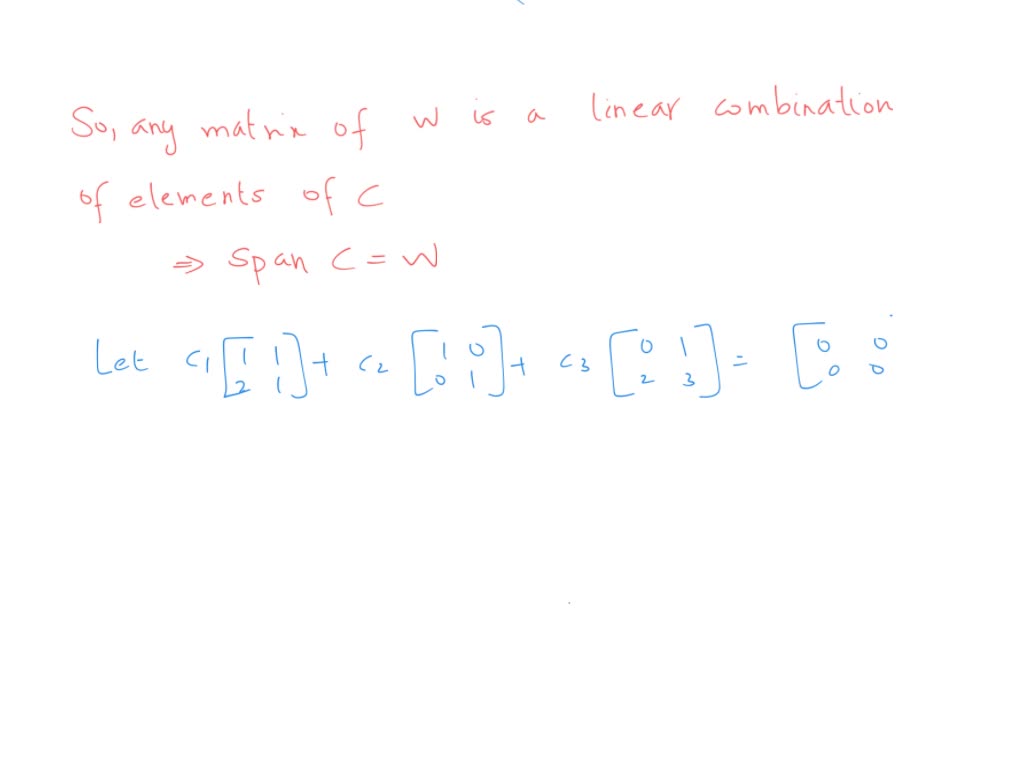 So, any matrix of W is a linear combination
of elements of C
⇒ Span C = W
Let c₁ [1 1; 2 1] + c₂ [1 0; 0 1] + c₃ [0 1; 2 3] = [0 0; 0 0]